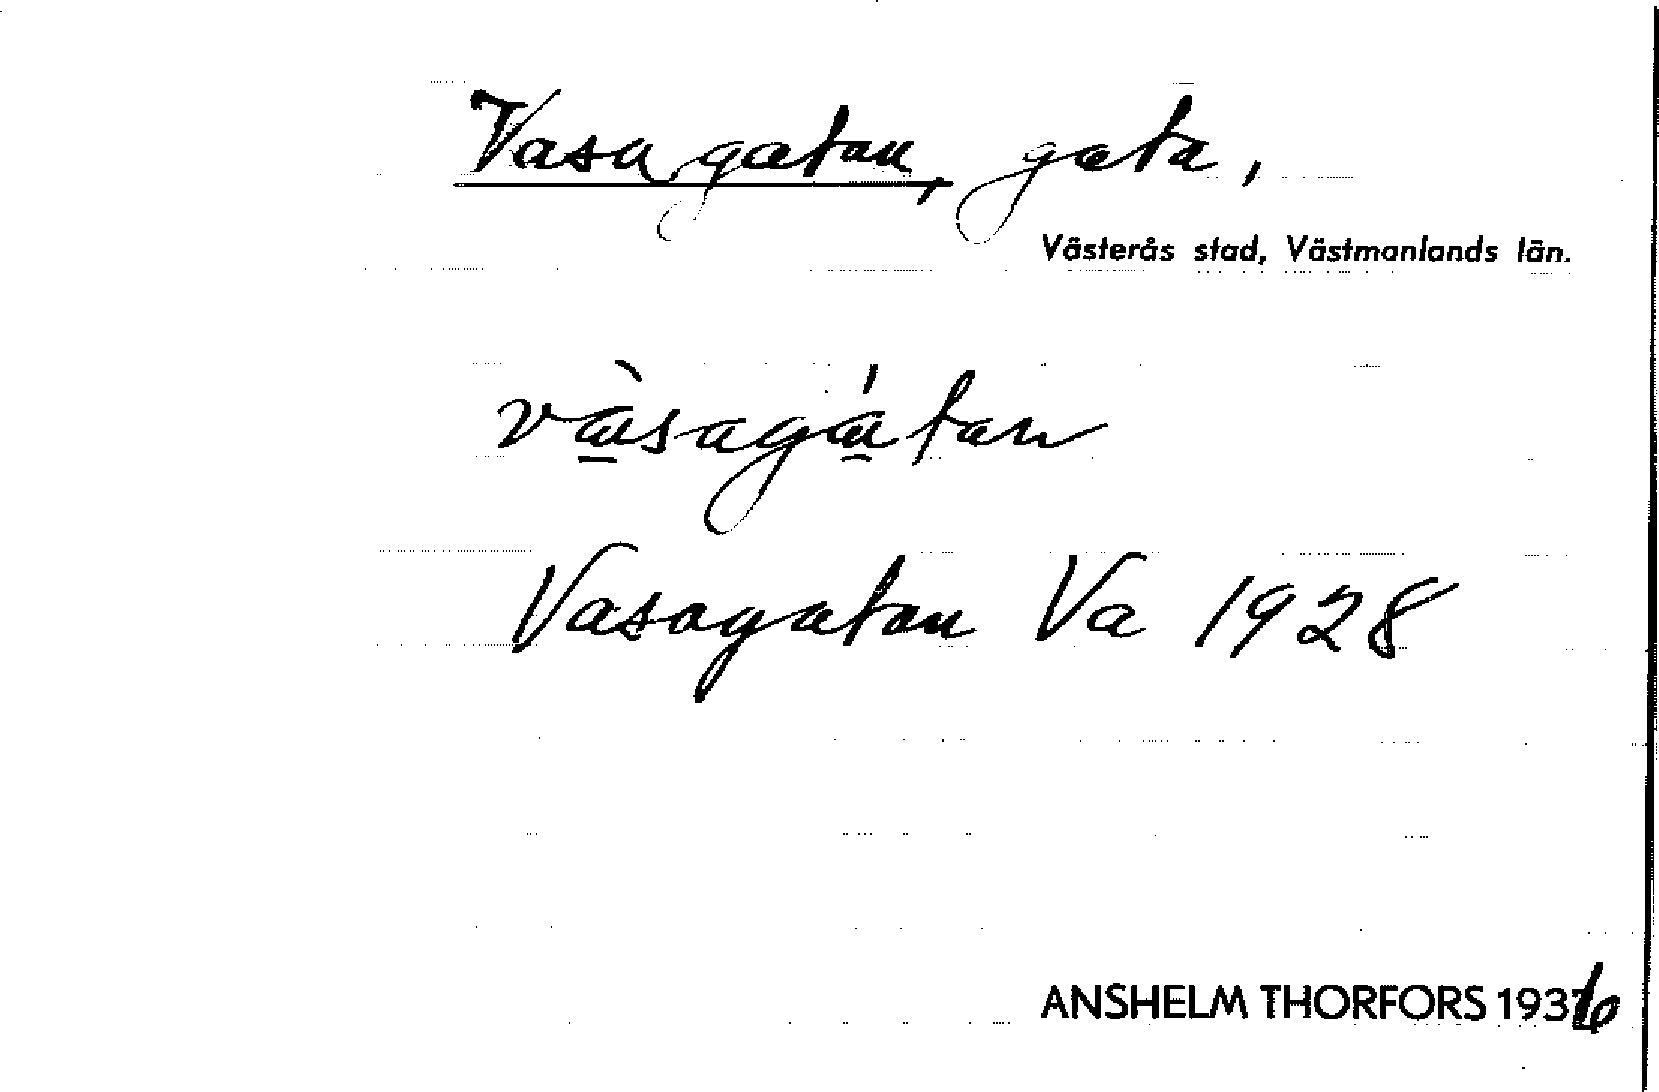 Vasagatan, gata,
Västerås stad, Västmanlands län.
vàsagátan
Vasagatan Va 1928
ANSHELM THORFORS 1936